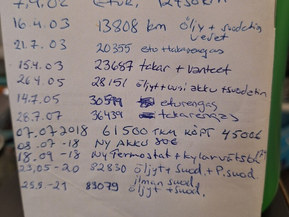 16.4.03 13808 km öljy + suodatin
vedet
21.7.03 20355 eto + takarengas
15.4.03 23687 takar + vanteet
26.4.05 28151 öljy + uusi akku + suodatin
14.7.05 30599 eturengas
28.7.07 36439 takarengas
07.07.2018 61500 TKM KÖPT 4500€
08.07 -18 NY AKKU 80€
18.09 -18 NY Termostat + kylarvätska
23.05-20 82830 öljyt + Suod + P.suod.
23.5-21 83079 ilman suod.
öljyt + suod.